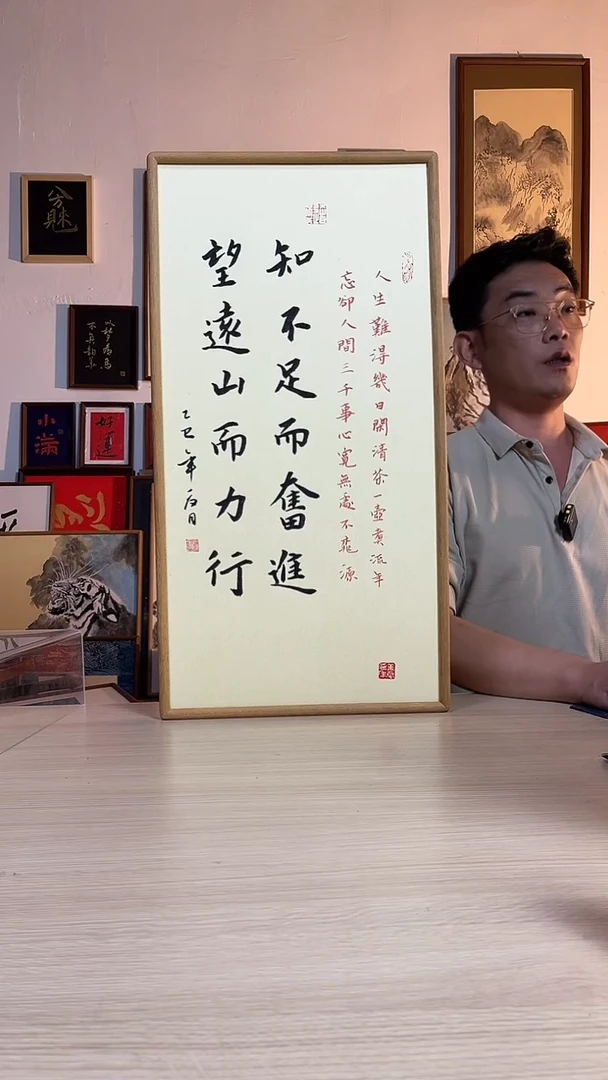 人生難得幾日閑清茶一壺煮流年
忘卻人間三千事心寬無處不桃源
知不足而奮進
望遠山而力行
乙巳年
以夢為馬
不負韶華
好運
小滿